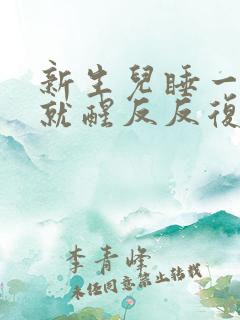 新生兒睡一
就醒反反復
李青峰
未任同意禁止轉載